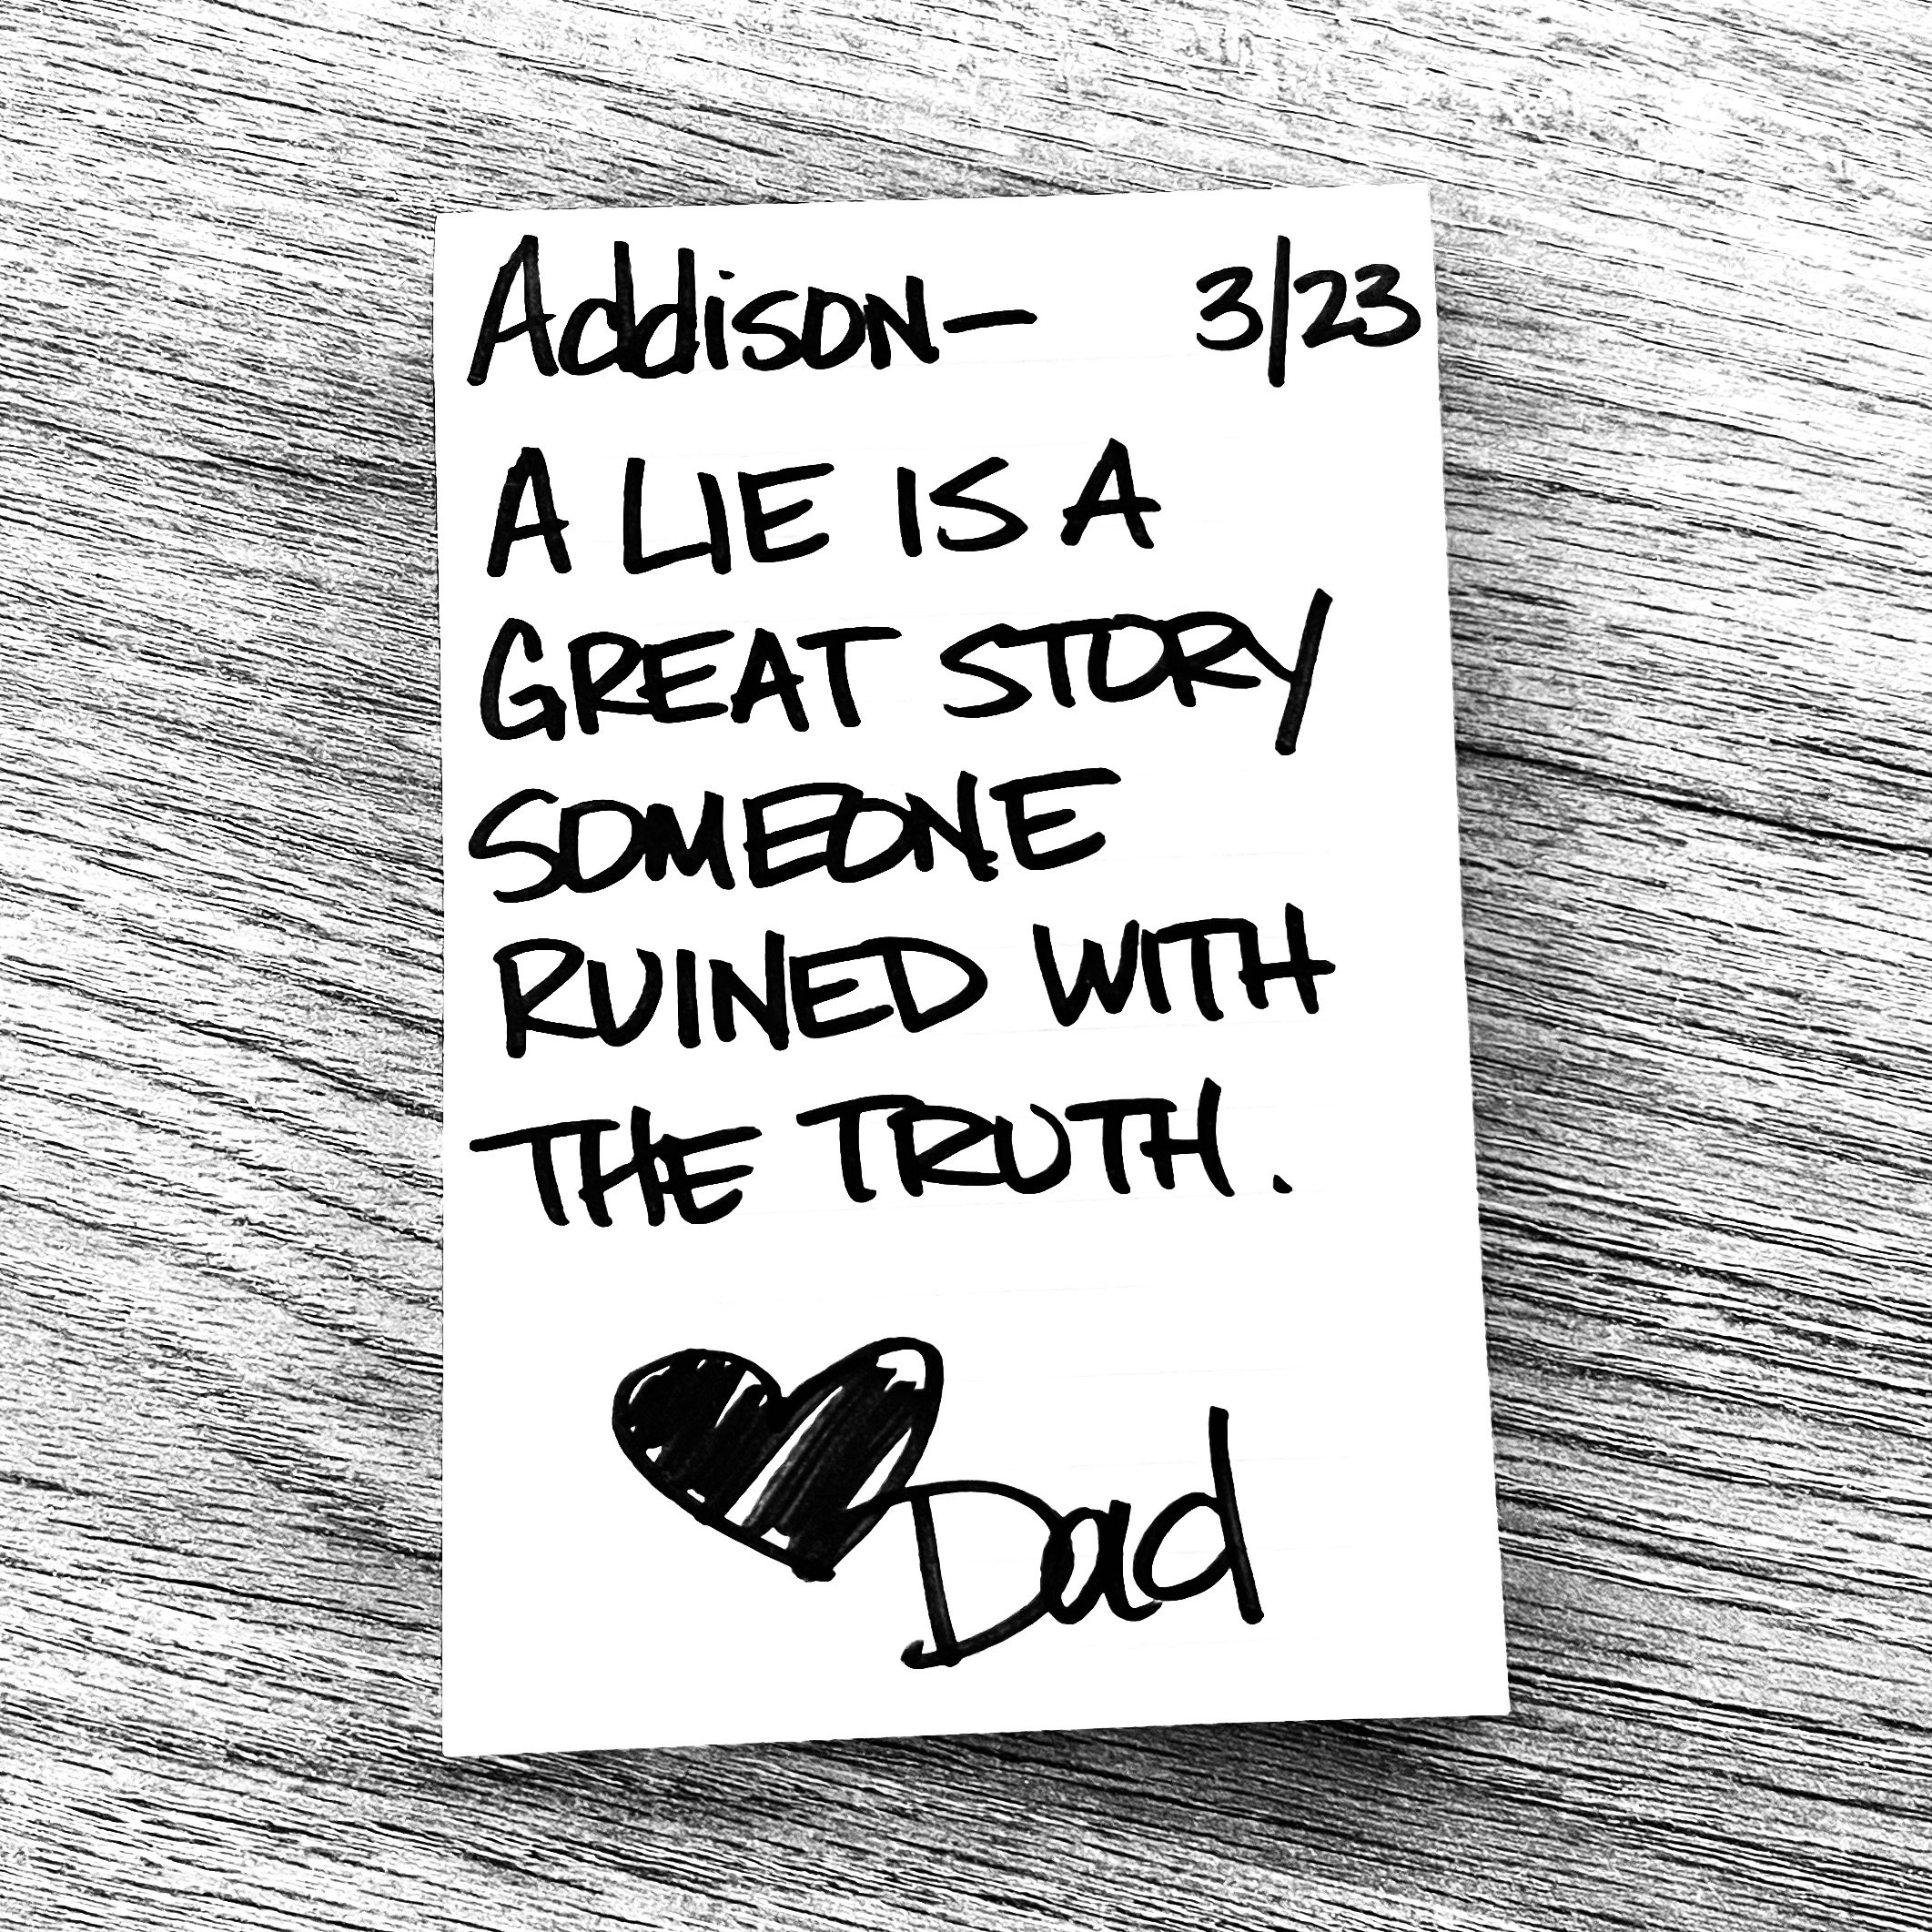 Addison— 3/23
A LIE IS A
GREAT STORY
SOMEONE
RUINED WITH
THE TRUTH.
Dad